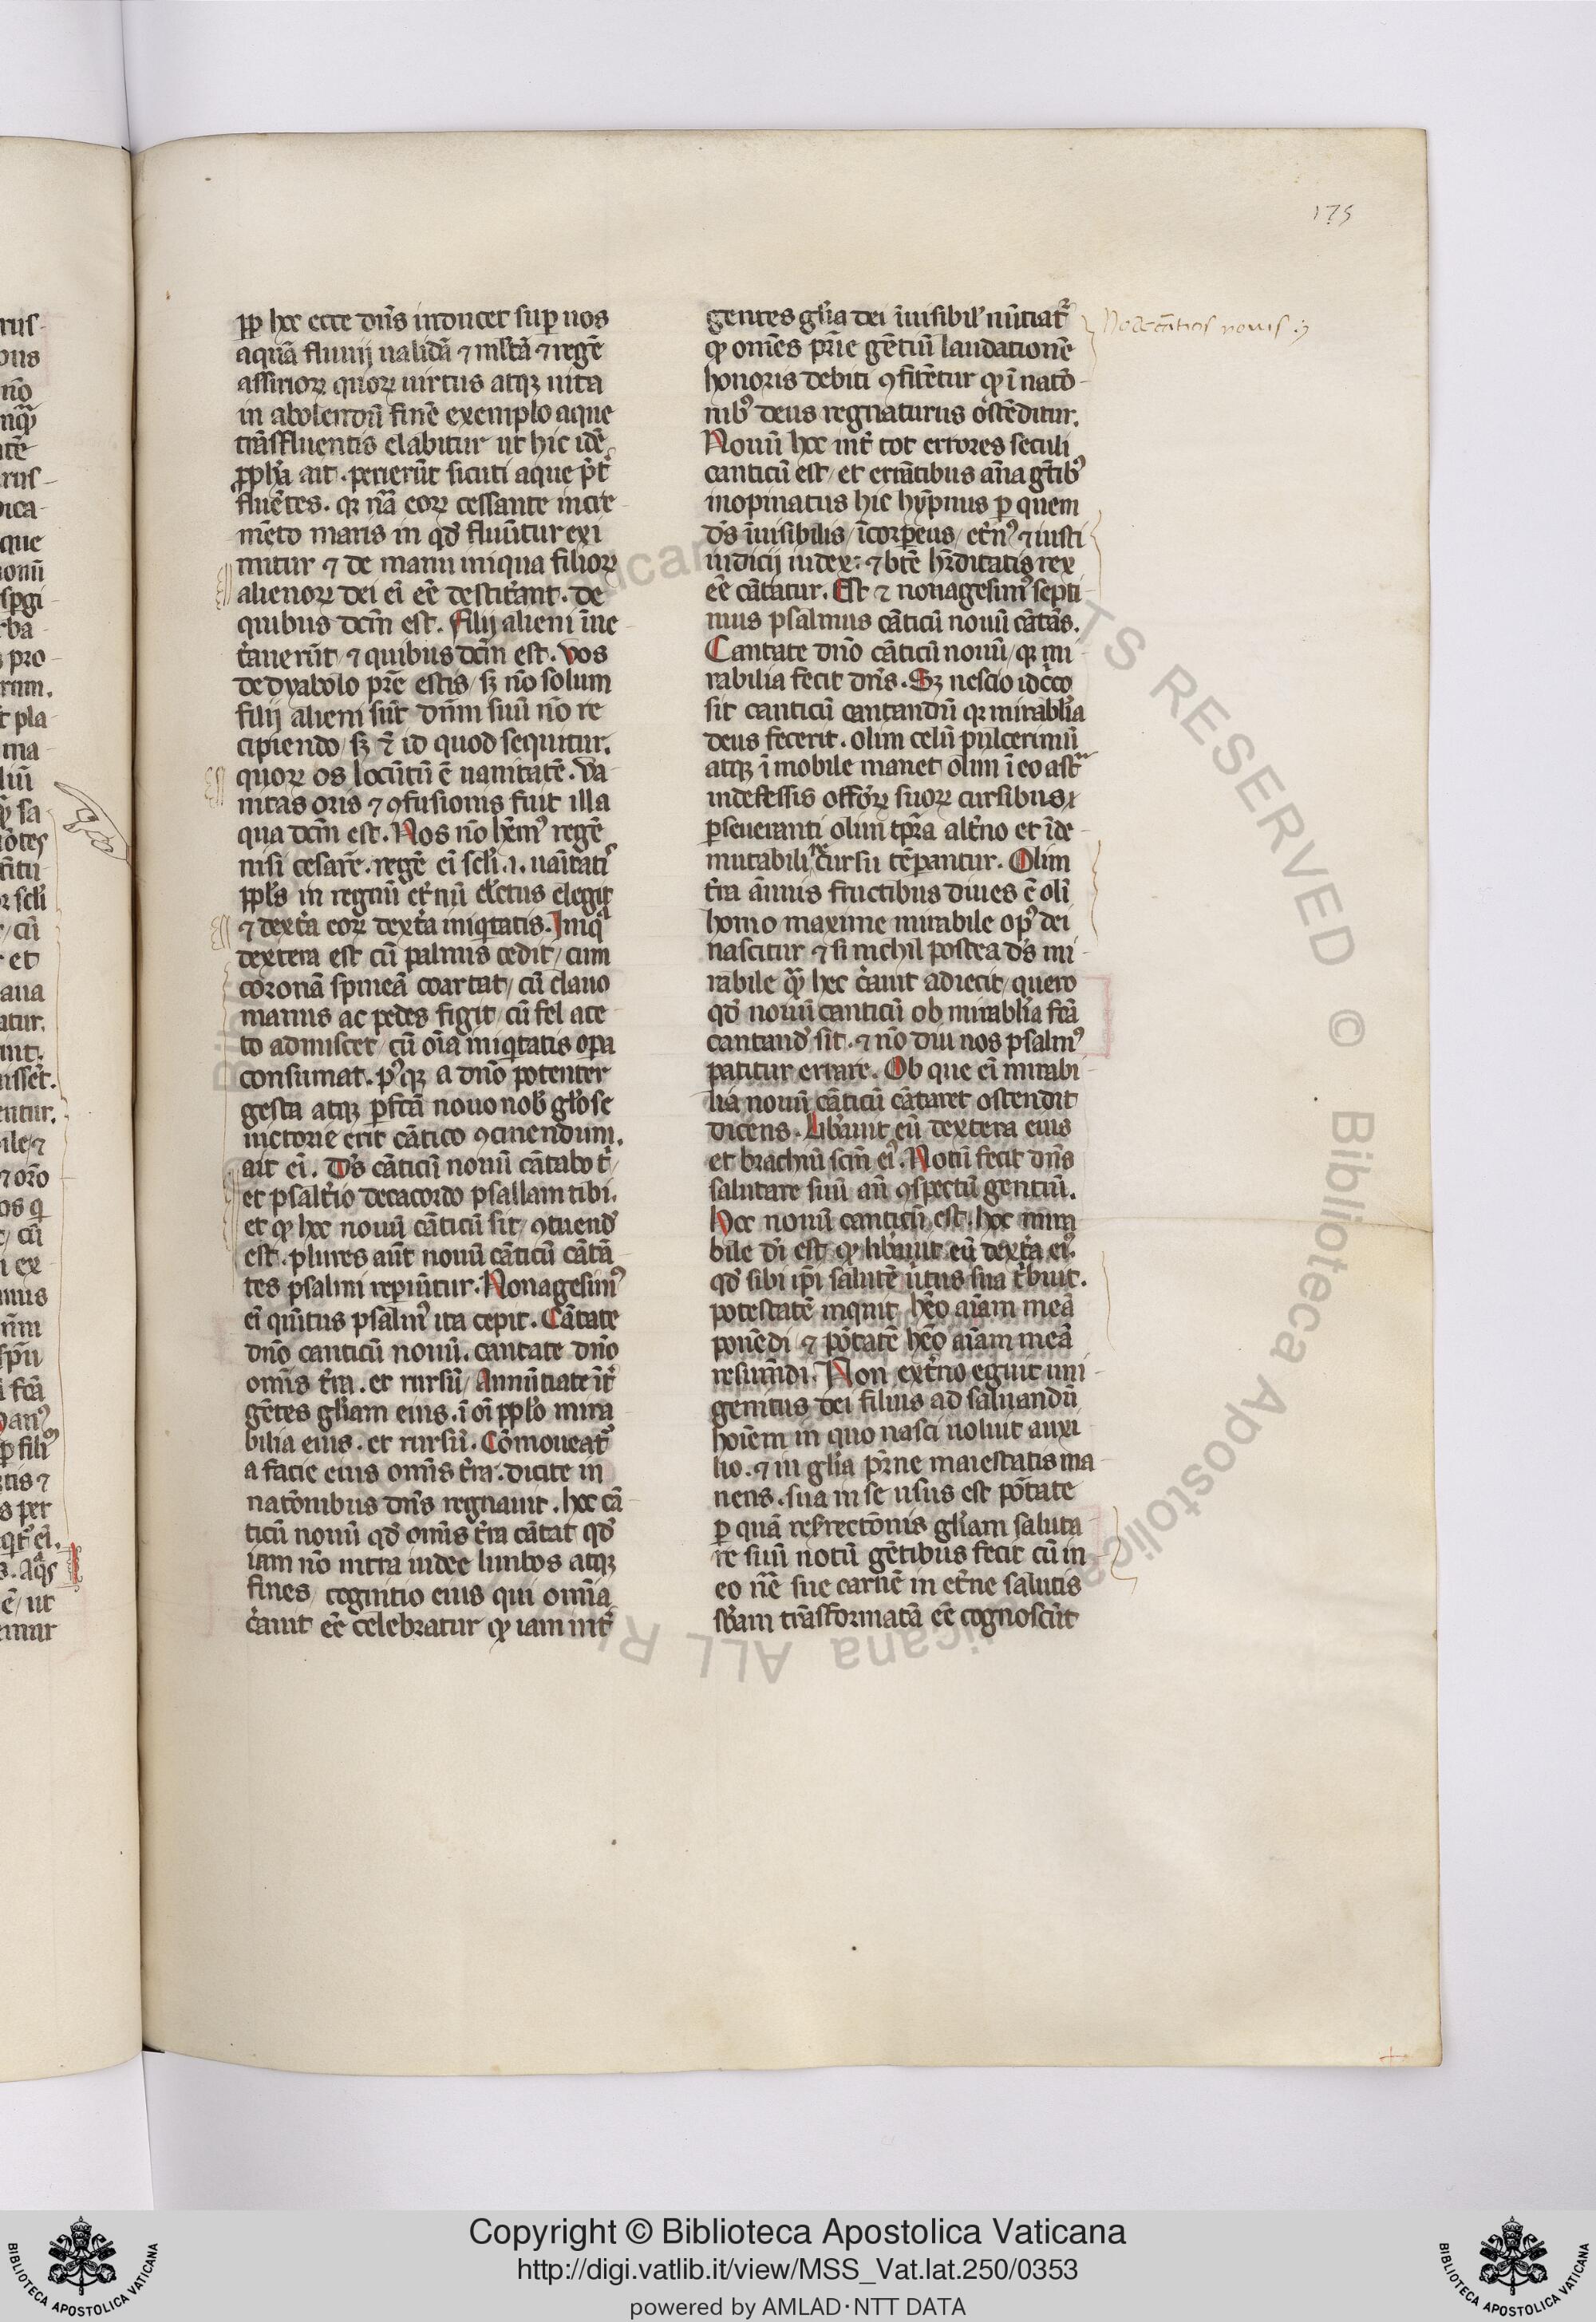 175
ꝓp hec ecce dn̄s inducet suꝑ nos
aquā fluuij ualidā ⁊ mltā ⁊ regē
assirioꝝ quoꝝ uirtus atqꝫ uita
in abolendū finē exemplo aque
trāsfluentis elabitur ut hic idē
ꝓpha ait . perierūt sicuti aque p̄t̾
fluētes . qꝛ nāa eoꝝ cessante incre
mēto maris in qd̓ fluūtur exi
mitur ⁊ de manu iniqua filioꝝ
alienoꝝ dei ei̅ ee̅ destit̾ant . de
quibus dcm̄ est . filij alieni īue
t̾auerūt / ⁊ quibus dcm̄ est . vos
de dyabolo pr̄e estis / sꝫ nō solum
filij alieni sūt dn̄m suū nō re
cipiendo / sꝫ ⁊ id quod sequitur .
quoꝝ os locūtū ē uanitatē . va
nitas oris ⁊ ꝯfusionis fuit illa
qua dcm̄ est . Nos nō hēmꝰ regē
nisi cesarē . regē ei̅ scl̓i . i . uaītatī
ppl̓s in regnū et̾nū el̓ectus elegit
⁊ dext̾a eoꝝ dext̾a iniqͥtatis . Iniqͣ
dextera est cū palmis cedit / cum
coronā spineā coartat / cū clauo
manus ac pedes figit / cū fel ace
to admiscet / cū oīa iniqͥtatis oꝑa
consumat . pꝰqꝫ a dn̄o potenter
gesta atqꝫ ꝑfcā nouo nob̓ gl̓ose
uictorie erit cātico ꝯcinendum .
ait ei̅ . Ds̄ cāticū nouū cātabo t̾ /
et psalt̾io decacordo psallam tibi .
et qꝙ hec nouū cāticū sit / ꝯtuend̓
est . plures aūt nouū cāticū cātā
tes psalmi reꝑiūtur . Nonagesimꝰ
ei̅ qūitus psalmꝰ ita cepit . Cātate
dn̄o canticū nouū . cantate dn̄o
omīs t̾ra . et rursū / Annūtiate īt̾
gētes gl̓iam eius . ī oī ppl̓o mira
bilia eius . et rursū . Cōmoueatꝰ
a facie eius omīs t̾ra . dicite in
natōnibus dn̄s regnauit . hec cā
ticū nouū qd̓ omīs t̾ra cātat qd̓
iam nō intra iudee limbos atqꝫ
fines / cognitio eius qui omīa
c̾auit ee̅ celebratur qꝙ iam int̾
gentes gl̓ia dei īuisibil̓ nūtiat̾
qꝙ omēs pr̄ie gētiū laudationē
honoris debiti ꝯfitētur qꝙ ī natō
nibꝰ deus regnaturus ostēditur .
Nouū hec int̾ tot errores seculi
canticū est / et errātibus an̄a gētibꝰ
inopinatus hic hyp̄nus ꝑ quem
ds̄ īuisibilis / īcorꝑeus / et̾nꝰ ⁊ iusti
iudicij iudex : ⁊ btē hr̄ditatis rex
ee̅ cātatur . Est ⁊ nonagesimꝰ septi
mus psalmus cāticū nouū cātās .
Cantate dn̄o cāticū nouū / qꝛ mi
rabilia fecit dn̄s . Sꝫ nescio idc̾co
sit canticū cantandū qꝛ mirabl̓ia
deus fecerit . olim celū pulcerimū
atqꝫ ī mobile manet olim ī eo ast̾
indefessis officioꝝ suoꝝ cursibus ⁊
ꝑseueranti olim tpr̄a alt̾no et īde
mutabili re cursu tēꝑantur . Olim
t̾ra āīmis fructibus diues ē oli̅
homo maxime mirabile opꝰ dei
nascitur ⁊ si nichil postea ds̄ mi
rabile qͣꝫ hec c̾auit adiecit / quero
qd̓ nouū canticū ob mirabl̓ia fcā
cantand̓ sit . ⁊ nō diu nos psalmꝰ
patitur errare . Ob que ei̅ mirabi
lia nouū cāticū cātaret ostendit
dicens . Lib̾auit eū dextera eius
et brachiū scm̄ eiꝰ . Notū fecit dn̄s
salutare suū an̄ ꝯspectū gentiū .
Hec nouū canticū est . hec mira
bile di̅ est qꝙ lib̾auit eū dext̾a eiꝰ .
qd̓ sibi ip̄i salutē u̾tus sua t̾buit .
potestatē inquit hēo aīam meā
ponēdi ⁊ po̅tatē hēo aīam meā
resumēdi . Non ext̾no eguit uni
genitus dei filius ad saluandū
hoīem in quo nasci uoluit auxi
lio . ⁊ in gl̓ia pr̄ne maiestatis ma
nens . sua in se usus est po̅tate
ꝑ quā resr̄rectōnis gl̓iam saluta
re suū notū gētibus fecit cū in
eo nēe sue carnē in et̾ne salutis
sb̄am trāsformatā ee̅ cognoscūt
Copyright © Biblioteca Apostolica Vaticana
http://digi.vatlib.it/view/MSS_Vat.lat.250/0353
powered by AMLAD·NTT DATA